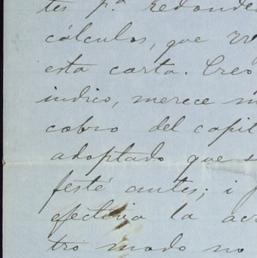 tes p.ª redonde
cálculos, que
esta carta. Creo
indico, merece
cobro del capi
adoptado que s
festé antes; i
efectiva la acr
tro modo no